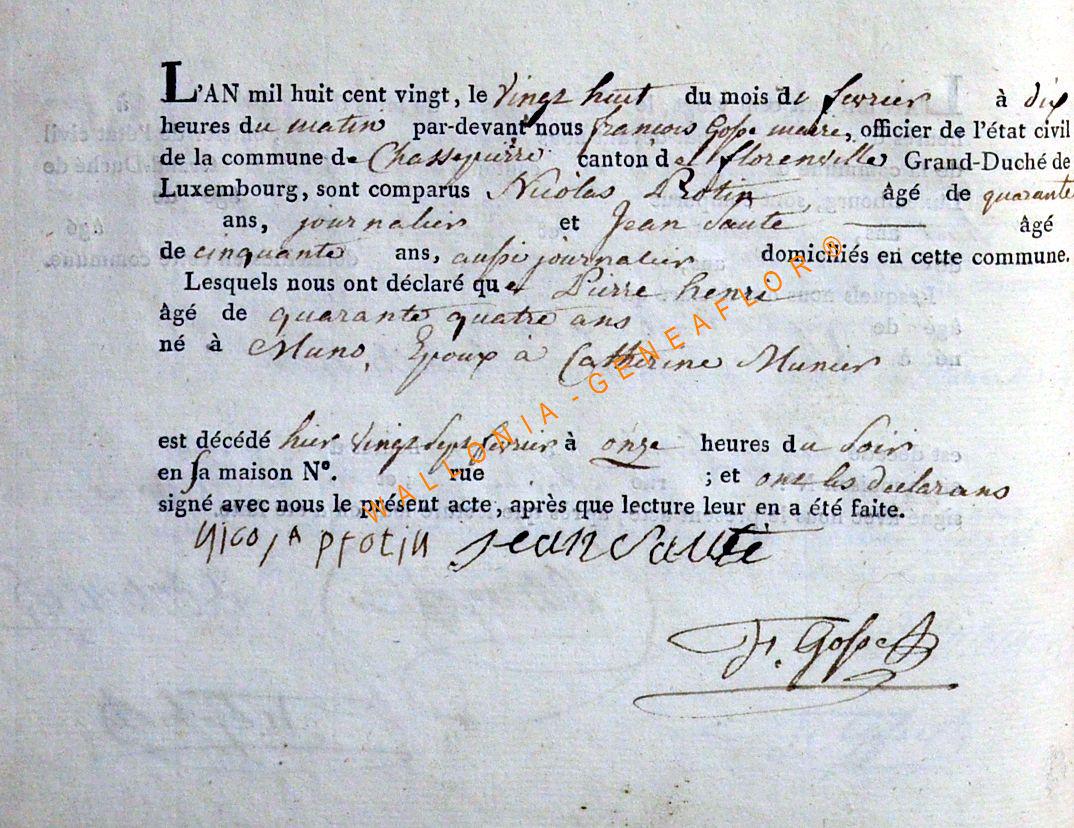 L'AN mil huit cent vingt, le vingt huit du mois de fevrier à dix
heures du matin par-devant nous francois Gosse maire, officier de l'état civil
de la commune de Chassepierre canton de florenville Grand-Duché de
Luxembourg, sont comparus Nicolas Protin âgé de quarante
ans, journalier et Jean Sauté âgé
de cinquante ans, aussi journalier domiciliés en cette commune.
Lesquels nous ont déclaré que Pierre henri
âgé de quarante quatre ans
né à Muno, Epoux à Catherine Munier
est décédé hier vingt sept fevrier à onze heures du soir
en sa maison N°. rue ; et ont les declarans
signé avec nous le présent acte, après que lecture leur en a été faite.
protin Jean Sauté
F. Gosse
WALLONIA - GENEAFLOR ®